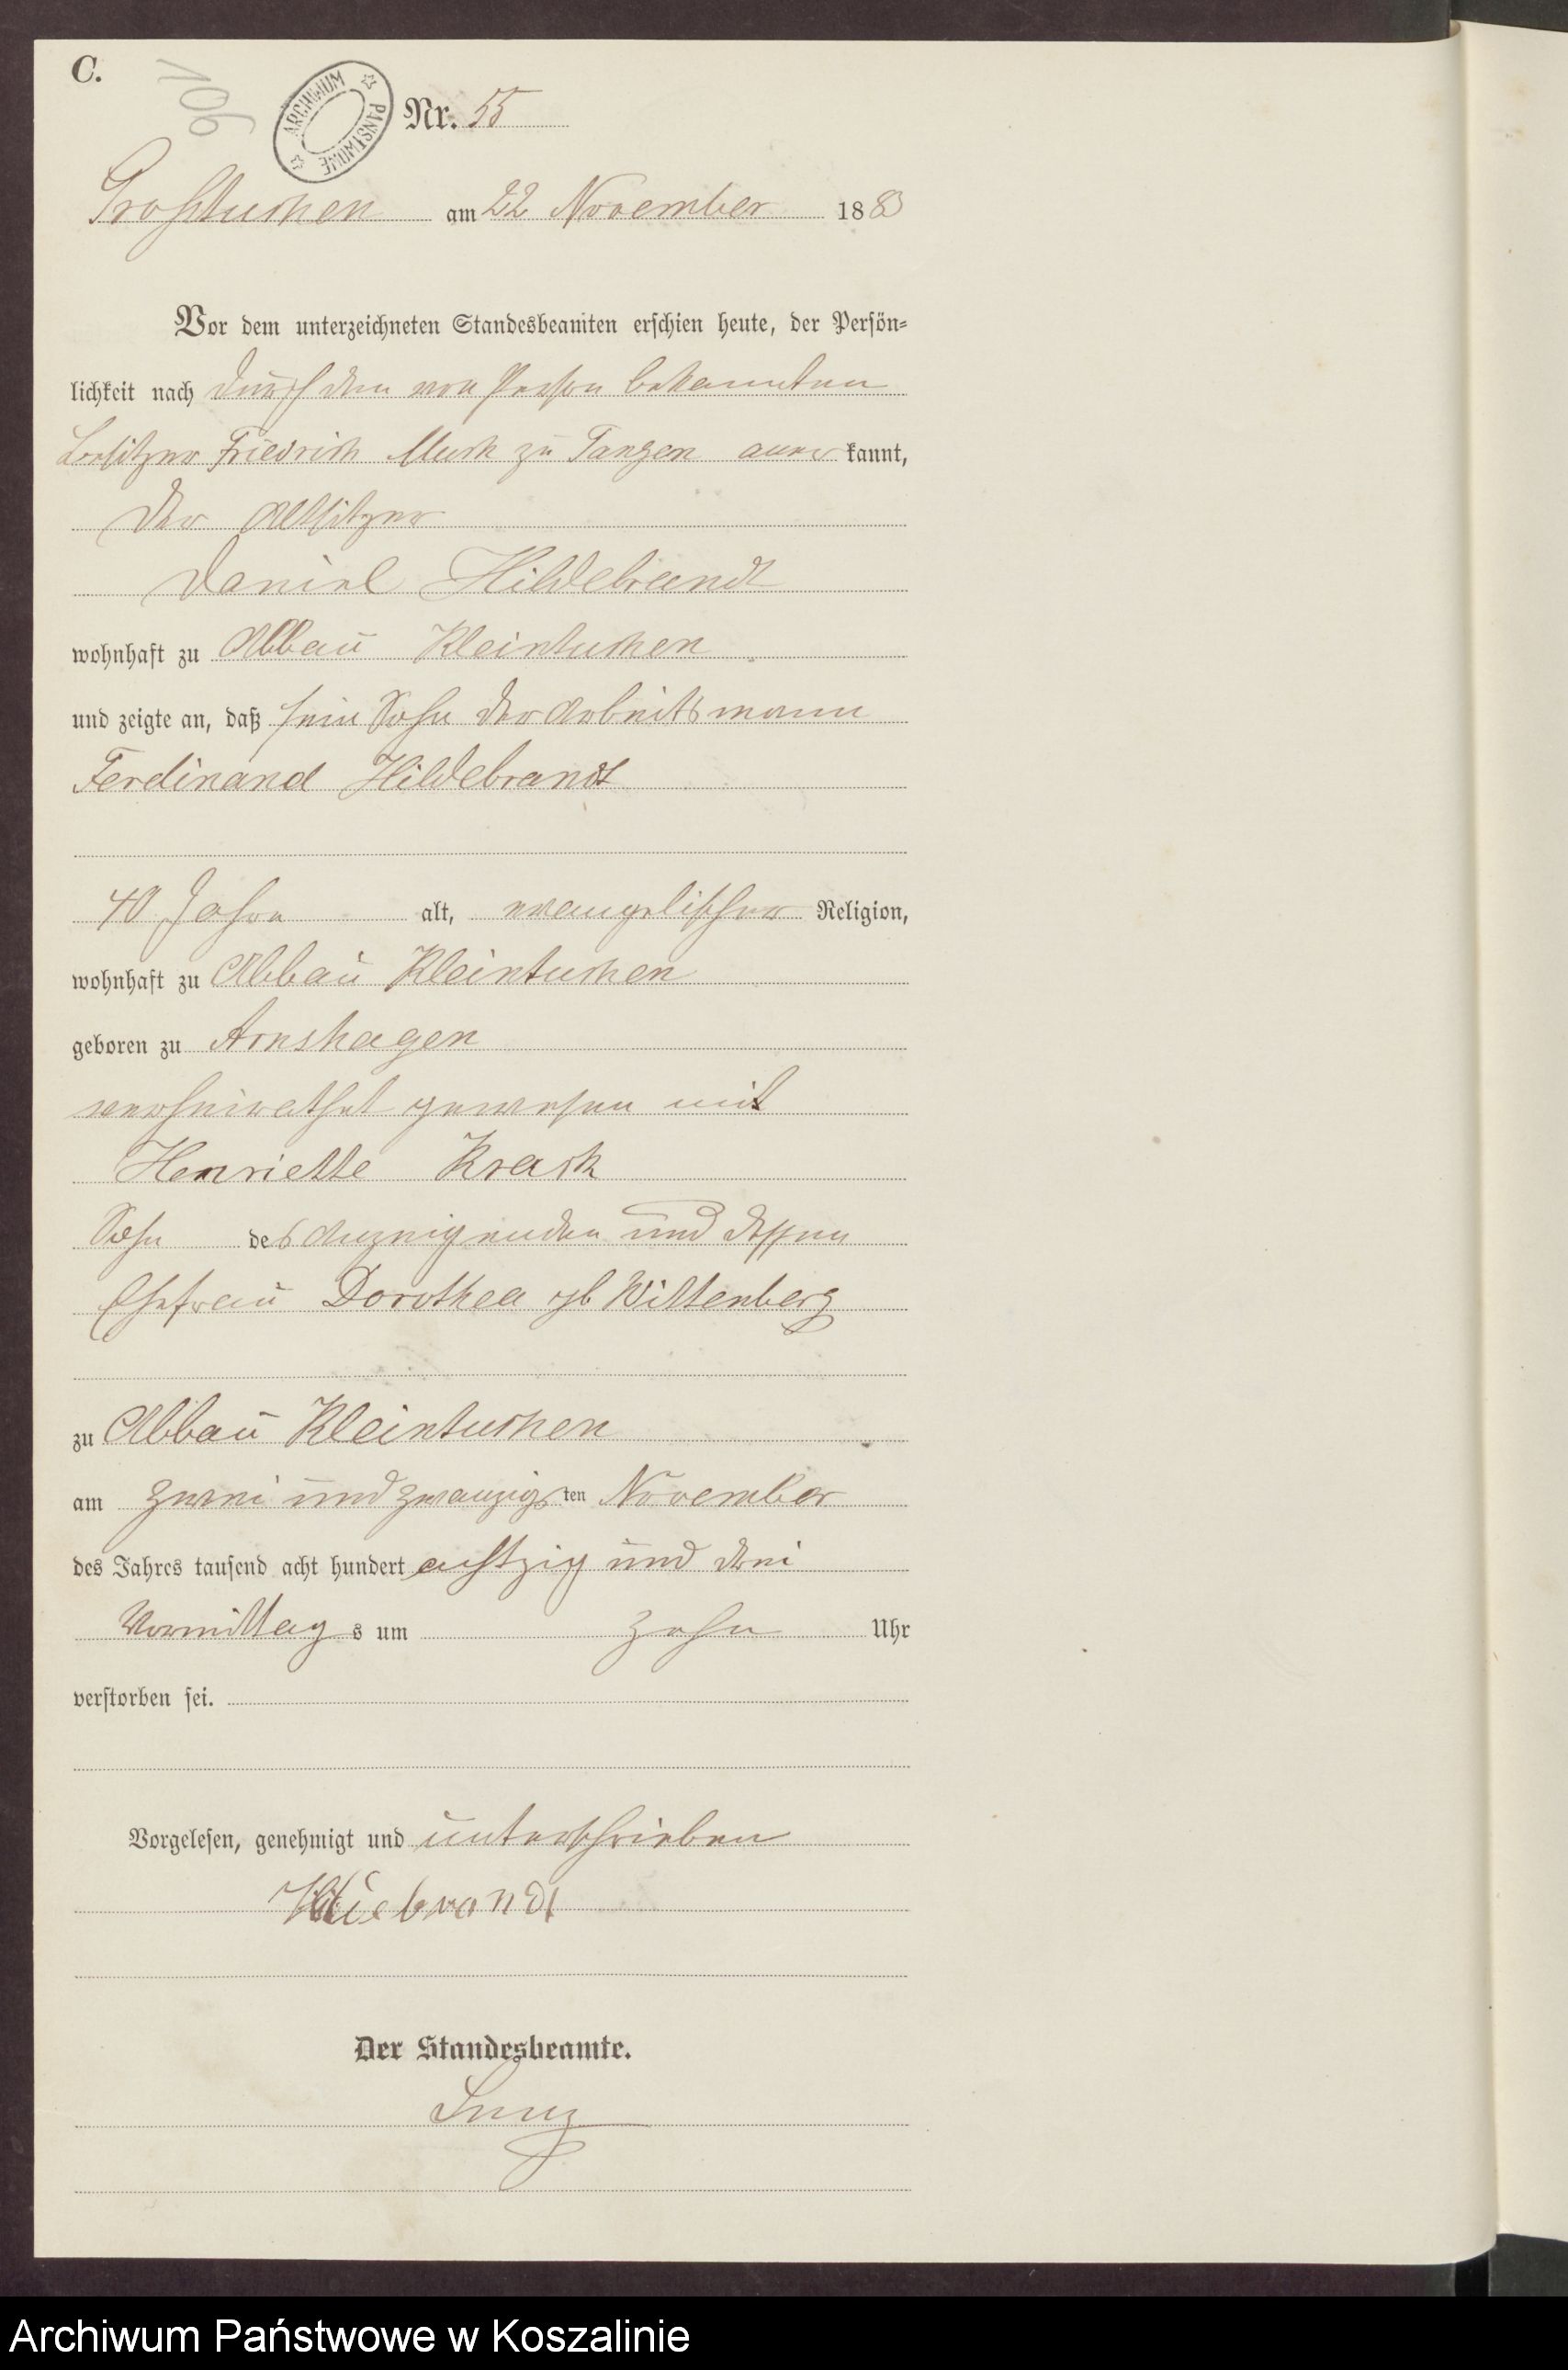 C.
90v
ARCHIWUM PAŃSTWOWE
Nr. 55
Großtuchen am 22 November 1883
Vor dem unterzeichneten Standesbeamten erschien heute, der Persön-
lichkeit nach durch den von Person bekannten
Besitzer Friedrich Muck zu Tangen aner kannt,
der Altsitzer
Daniel Hildebrandt
wohnhaft zu Abbau Kleintuchen
und zeigte an, daß sein Sohn der Arbeitsmann
Ferdinand Hildebrandt
40 Jahre alt, evangelischer Religion,
wohnhaft zu Abbau Kleintuchen
geboren zu Arnshagen
verheirathet gewesen mit
Henriette Krack
Sohn des Anzeigenden und dessen
Ehefrau Dorothea gb Wittenberg
zu Abbau Kleintuchen
am zwei und zwanzigsten November
des Jahres tausend acht hundert achtzig und drei
Vormittags um zehn Uhr
verstorben sei.
Vorgelesen, genehmigt und unterschrieben
Der Standesbeamte.
Archiwum Państwowe w Koszalinie